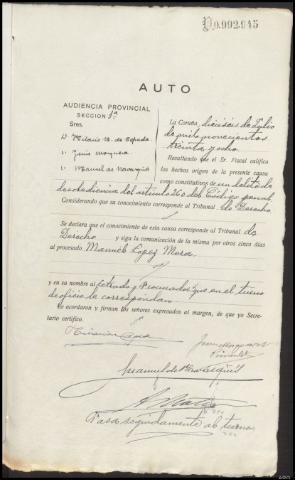 P0.992.945
AUTO
AUDIENCIA PROVINCIAL
SECCION 1ª
Sres.
D. Hilario de
" Jenis
" Manuel de
La Coruña, dieciseis de Julio
de mil novecientos
treinta y ocho
Resultando que el Sr. Fiscal califica
los hechos origen de la presente causa
como constitutivos de un delito de
desobediencia del artículo 260 del Código penal
Considerando que su conocimiento corresponde al Tribunal de Derecho
Se declara que el conocimiento de esta causa corresponde al Tribunal de
Derecho y siga la comunicación de la misma por otros cinco días
al procesado Manuel López Mora
y en su nombre al Letrado y Procurador que en el turno
de oficio le correspondan
Lo acordaron y firman los señores expresados al margen, de que yo Secretario
certifico.
Pasa seguidamente al turno